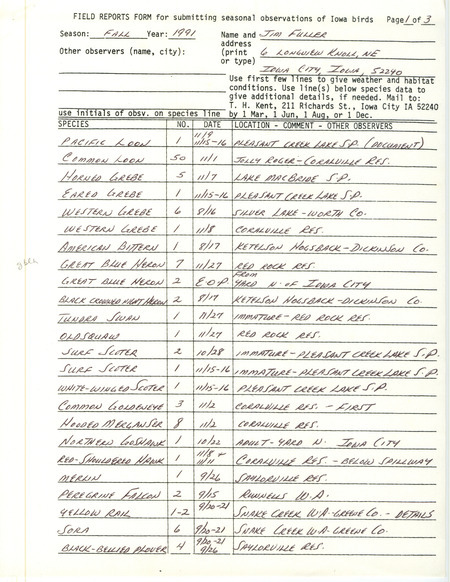 FIELD REPORTS FORM for submitting seasonal observations of Iowa birds Page 1 of 3
Season: FALL Year: 1991 Name and JIM FULLER
address
Other observers (name, city): (print 6 LONGVIEW KNOLL, NE
or type) IOWA CITY, IOWA, 52240
Use first few lines to give weather and habitat
conditions. Use line(s) below species data to
give additional details, if needed. Mail to:
T. H. Kent, 211 Richards St., Iowa City IA 52240
use initials of obsv. on species line by 1 Mar, 1 Jun, 1 Aug, or 1 Dec.
SPECIES NO. DATE LOCATION - COMMENT - OTHER OBSERVERS
PACIFIC LOON 1 11/9 11/15-16 PLEASANT CREEK LAKE S.P. (DOCUMENT)
COMMON LOON 50 11/1 JOLLY ROGER - CORALVILLE RES.
HORNED GREBE 5 11/7 LAKE MACBRIDE S.P.
EARED GREBE 1 11/15-16 PLEASANT CREEK LAKE S.P.
WESTERN GREBE 6 8/16 SILVER LAKE - WORTH CO.
WESTERN GREBE 1 11/8 CORALVILLE RES.
AMERICAN BITTERN 1 8/17 KETELSON HOGSBACK - DICKINSON CO.
GREAT BLUE HERON 7 11/27 RED ROCK RES.
GREAT BLUE HERON 2 E.O.P. FROM YARD N. OF IOWA CITY
BLACK CROWNED NIGHT HERON 2 8/17 KETELSON HOGSBACK - DICKINSON CO.
TUNDRA SWAN 1 11/27 IMMATURE - RED ROCK RES.
OLDSQUAW 1 11/27 RED ROCK RES.
SURF SCOTER 2 10/28 IMMATURE - PLEASANT CREEK LAKE S.P.
SURF SCOTER 1 11/15-16 IMMATURE - PLEASANT CREEK LAKE S.P.
WHITE-WINGED SCOTER 1 11/15-16 PLEASANT CREEK LAKE S.P.
COMMON GOLDENEYE 3 11/2 CORALVILLE RES. - FIRST
HOODED MERGANSER 8 11/2 CORALVILLE RES.
NORTHERN GOSHAWK 1 10/22 ADULT - YARD N. IOWA CITY
RED-SHOULDERED HAWK 1 11/8 + 11/11 CORALVILLE RES. - BELOW SPILLWAY
MERLIN 1 9/26 SAYLORVILLE RES.
PEREGRINE FALCON 2 9/15 RUNNELLS W.A.
YELLOW RAIL 1-2 9/20-21 SNAKE CREEK W.A - GREENE CO. - DETAILS
SORA 6 9/20-21 SNAKE CREEK W.A - GREENE CO.
BLACK-BELLIED PLOVER 4 9/20-21 9/26 SAYLORVILLE RES.